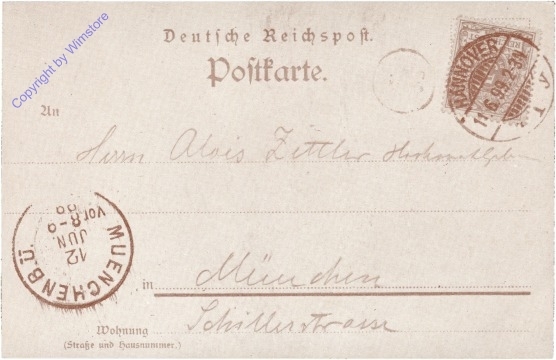 Copyright by Wimstore
Deutsche Reichspost.
Postkarte.
HANNOVER
11.6.99.2-3N
1
An
Herrn Alois Zettler
MUENCHEN B.Ü.
12
JUN
Vor 8-9
99
in München
Wohnung
(Straße und Hausnummer.)
Schillerstrasse